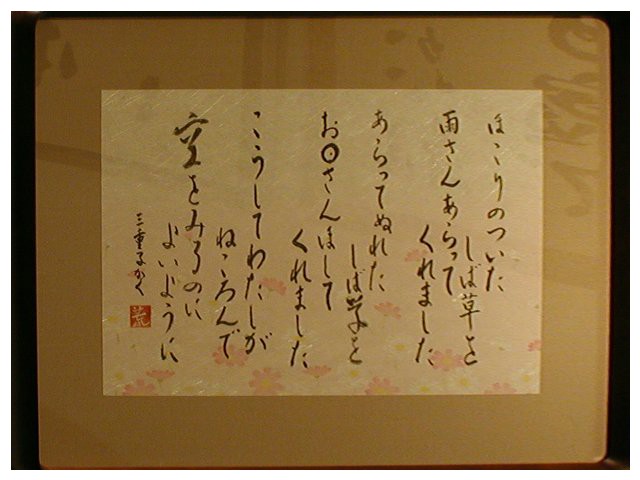 ほこりのついた
しば草を
雨さんあらって
くれました
あらってぬれた
しば草を
お〇さんほして
くれました
こうしてわたしが
ねころんで
空をみるのに
よいように
三重子かく